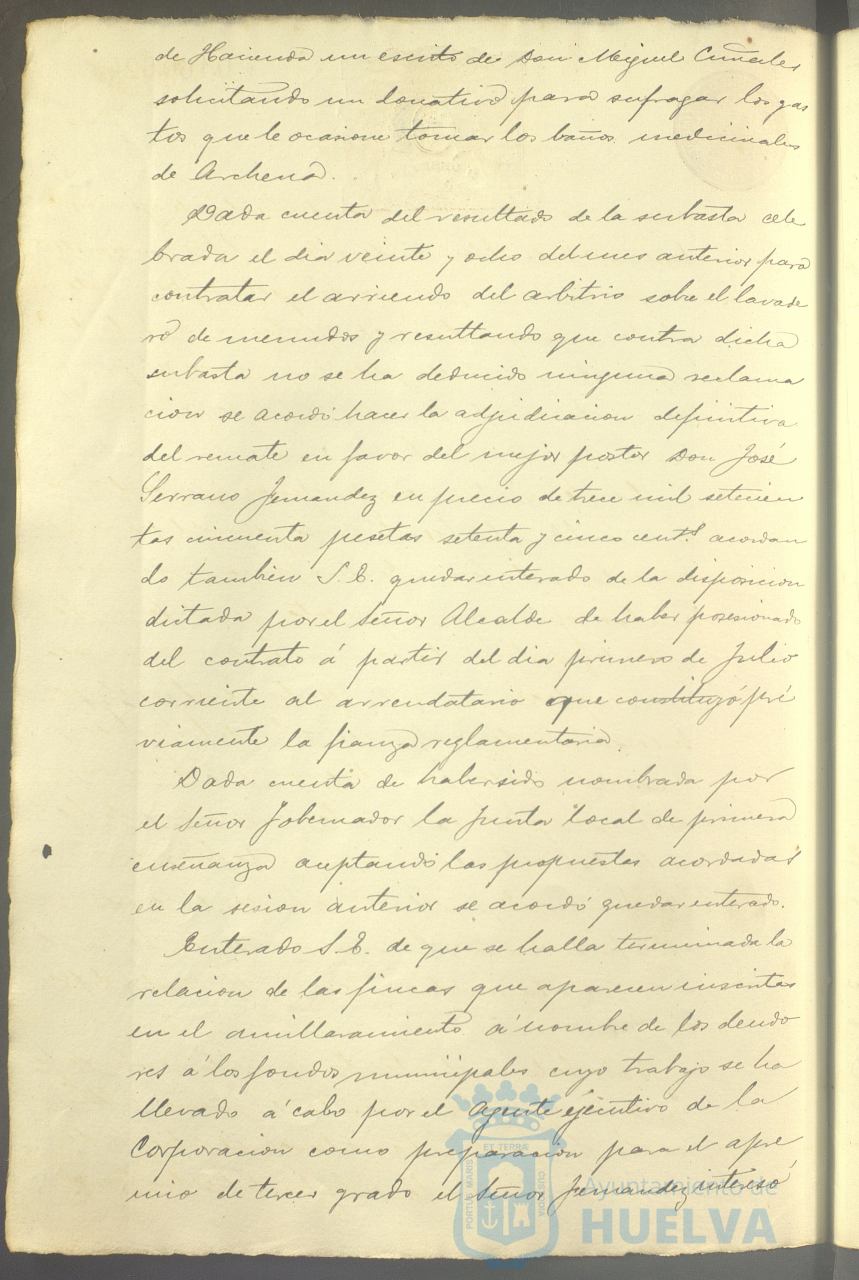 de Hacienda un escrito de Don Miguel
solicitando un donativo para sufragar los gas
tos que le ocasione tomar los baños medicinales
de Archena.
Dada cuenta del resultado de la subasta cele
brada el dia veinte y ocho del mes anterior para
contratar el arriendo del arbitrio sobre el lavade
ro de menudos y resultando que contra dicha
subasta no se ha deducido ninguna reclama
cion se acordó hacer la adjudicacion definitiva
del remate en favor del mejor postor Don José
Serrano Fernandez en precio de trece mil setecien
tas cincuenta pesetas setenta y cinco cent.s acordan
do tambien S. E. quedar enterado de la disposicion
dictada por el Señor Alcalde de haber posesionado
del contrato á partir del dia primero de Julio
corriente al arrendatario que constituyó pré
viamente la fianza reglamentaria.
Dada cuenta de haber sido nombrada por
el Señor Gobernador la Junta local de primera
enseñanza aceptando las propuestas acordadas
en la sesion anterior se acordó quedar enterado.
Enterado S. E. de que se halla terminada la
relacion de las fincas que aparecen inscritas
en el amillaramiento á nombre de los deudo
res á los fondos municipales cuyo trabajo se ha
llevado á cabo por el Agente ejecutivo de la
Corporacion como preparacion para el apre
mio de tercer grado el Señor Fernandez interesó
PORTUS MARIS ET TERRÆ CUSTODIA
Ayuntamiento de
HUELVA